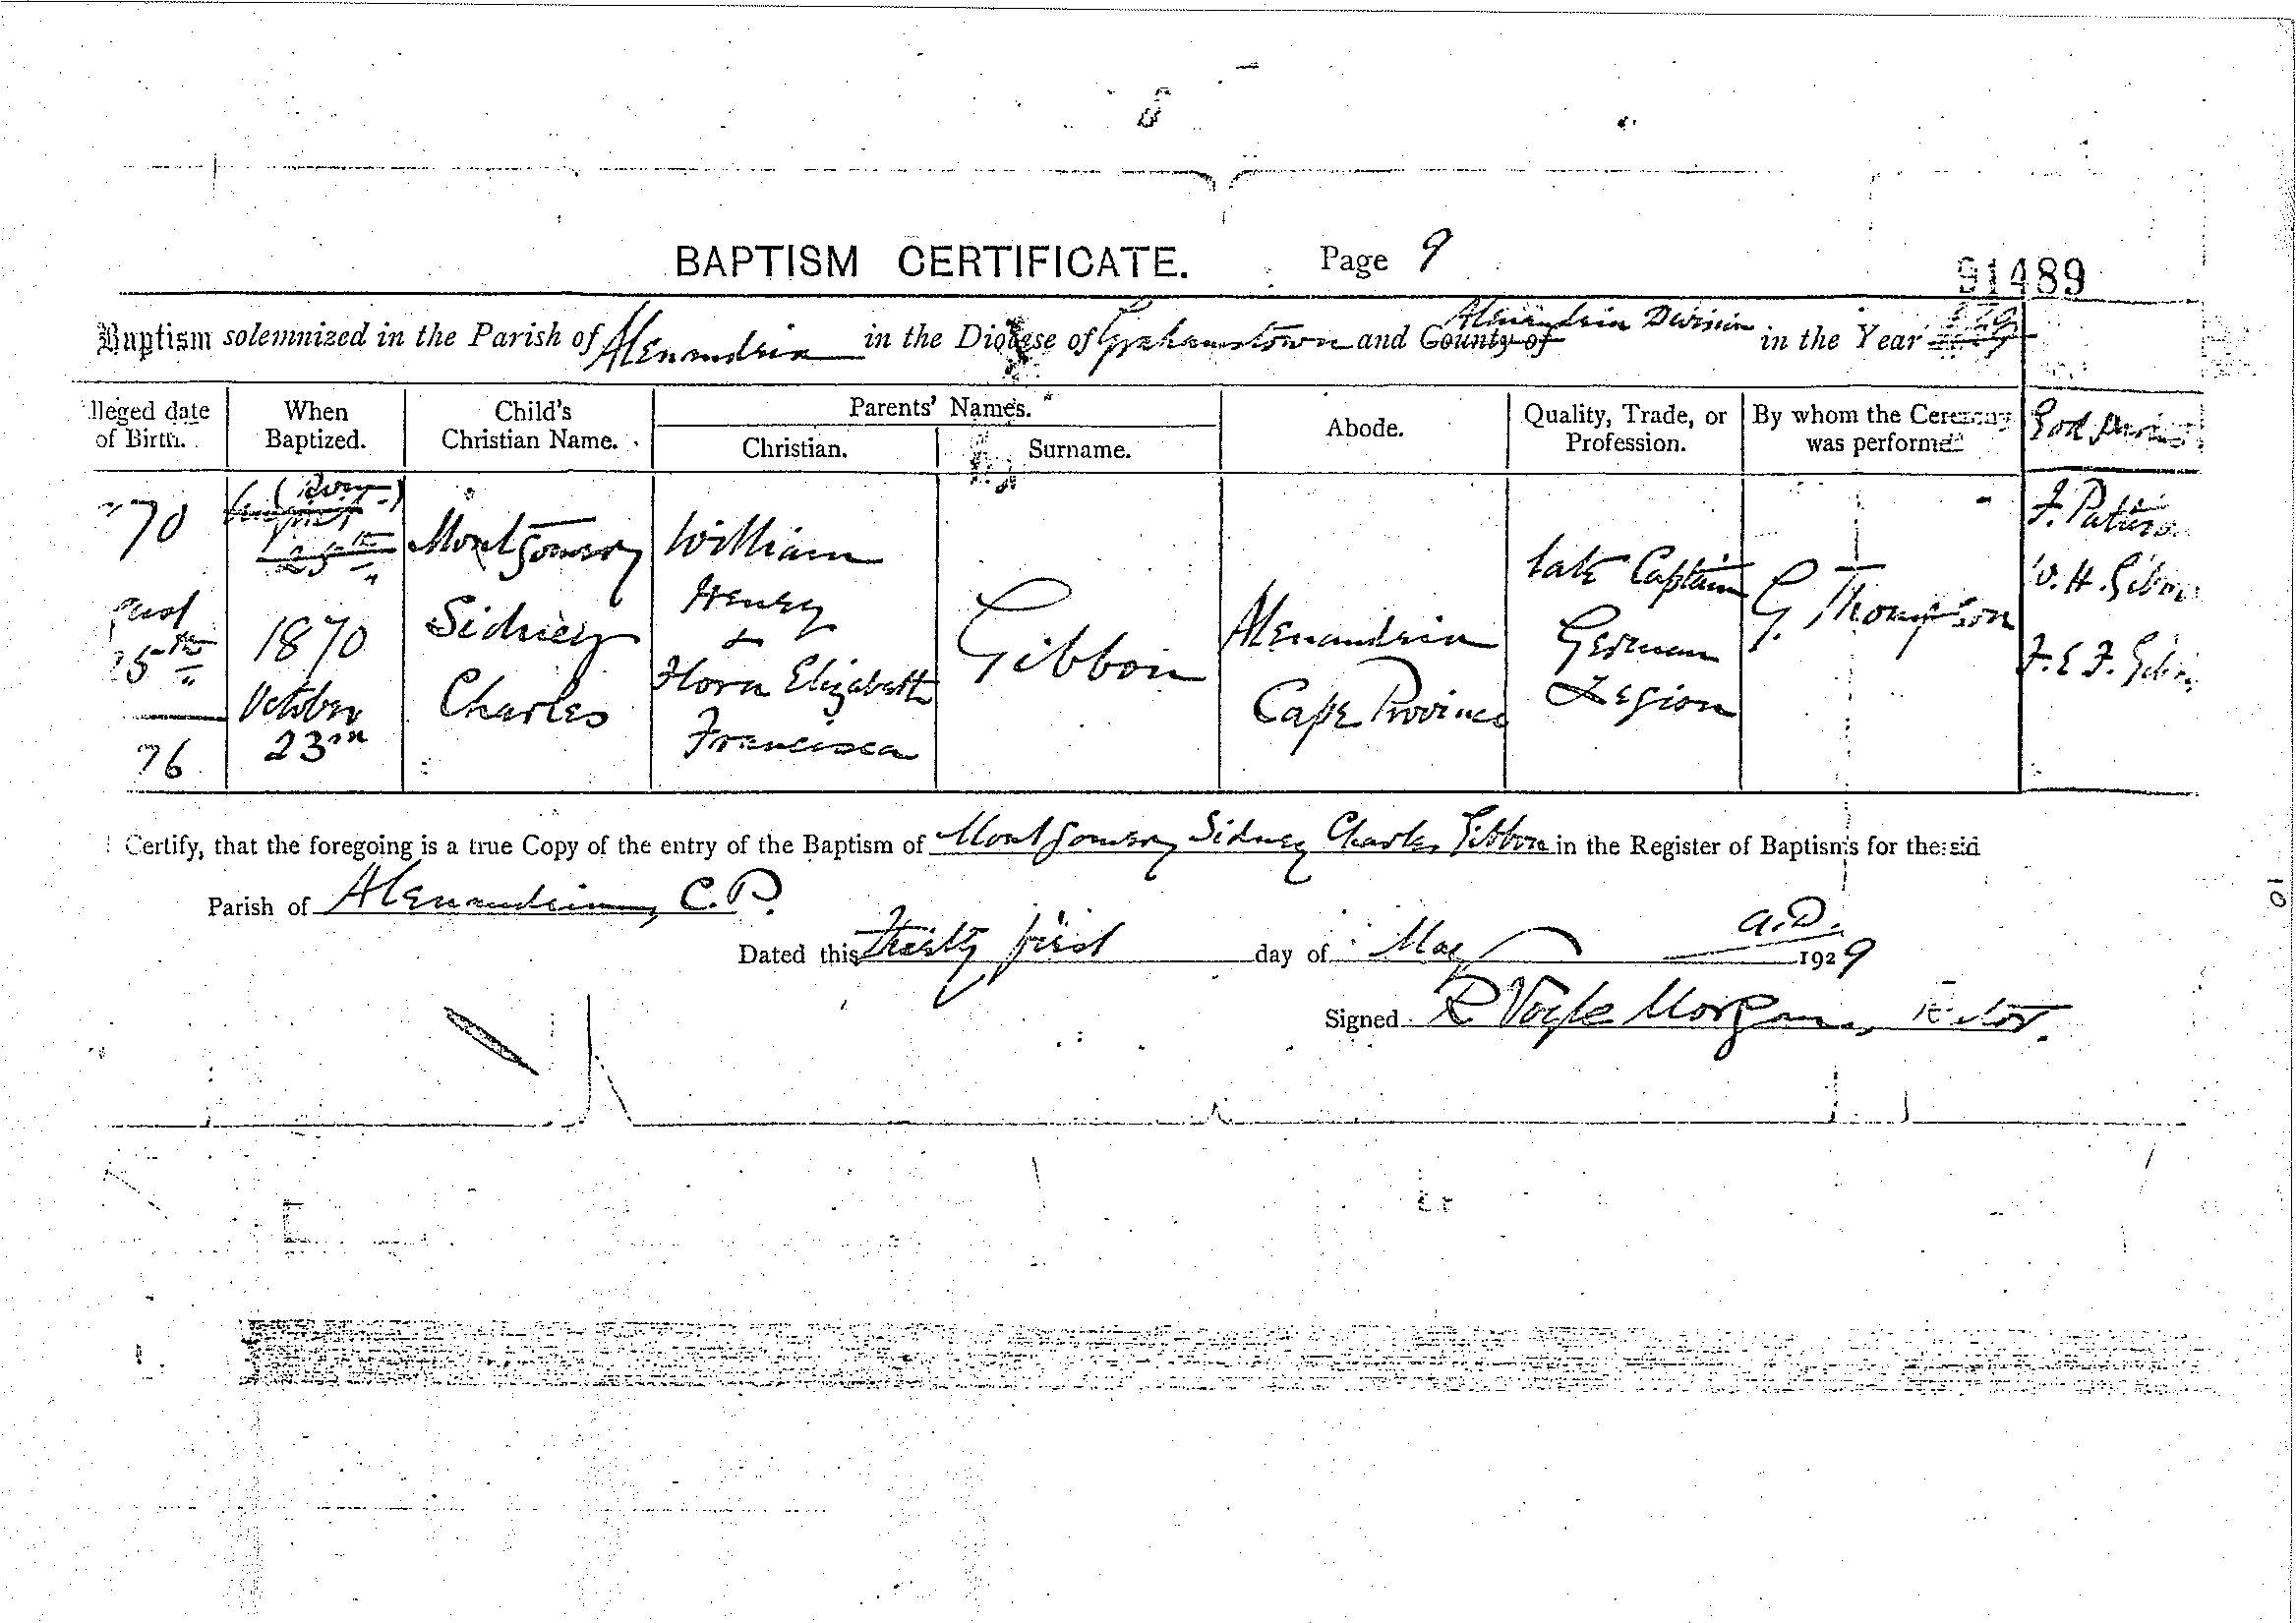 BAPTISM CERTIFICATE. Page 9
91489
Baptism solemnized in the Parish of Alexandria in the Diocese of Grahamstown and County of Alexandria Division in the Year
lleged date of Birth.
When Baptized.
Child's Christian Name.
Parents' Names.
Christian.
Surname.
Abode.
Quality, Trade, or Profession.
By whom the Ceremony was performed
God
70
25th
76
(Boy)
August
25th
1870
October
23rd
Montgomery
Sidney
Charles
William
Henry
&
Flora Elizabeth
Francisca
Gibbon
Alexandria
Cape Province
late Captain
German
Legion
G. Thompson
W. H. Gibbon
F. E. F. Gibbon
Certify, that the foregoing is a true Copy of the entry of the Baptism of Montgomery Sidney Charles Gibbon in the Register of Baptisms for the said
Parish of Alexandria, C.P.
Dated this Thirty first day of May A.D. 1929
Signed R Vogle Morgan, Rector.